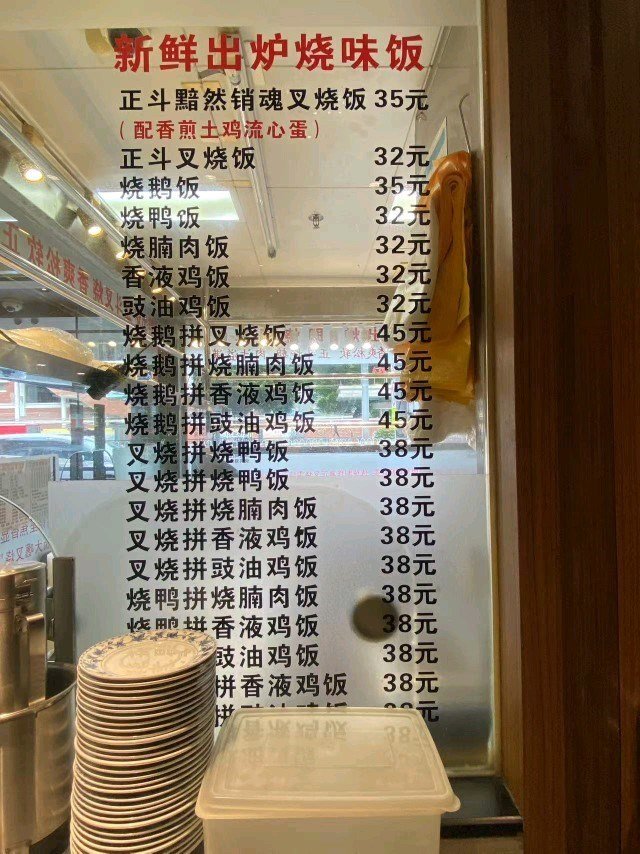 新鲜出炉烧味饭
正斗黯然销魂叉烧饭 35元
(配香煎土鸡流心蛋)
正斗叉烧饭 32元
烧鹅饭 35元
烧鸭饭 32元
烧腩肉饭 32元
香液鸡饭 32元
豉油鸡饭 32元
烧鹅拼叉烧饭 45元
烧鹅拼烧腩肉饭 45元
烧鹅拼香液鸡饭 45元
烧鹅拼豉油鸡饭 45元
叉烧拼烧鸭饭 38元
叉烧拼烧鸭饭 38元
叉烧拼烧腩肉饭 38元
叉烧拼香液鸡饭 38元
叉烧拼豉油鸡饭 38元
烧鸭拼烧腩肉饭 38元
烧鸭拼香液鸡饭 38元
豉油鸡饭 38元
拼香液鸡饭 38元
38元